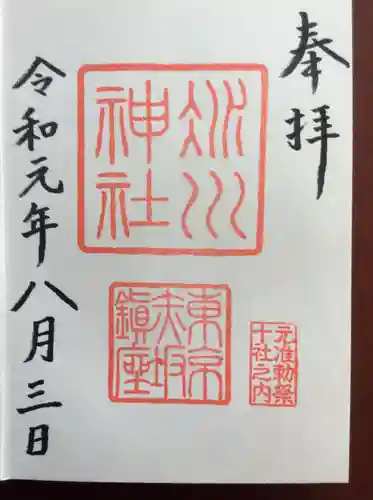 奉拝
氷川
神社
東京
赤坂
鎮座
元准勅祭
十社之内
令和元年八月三日